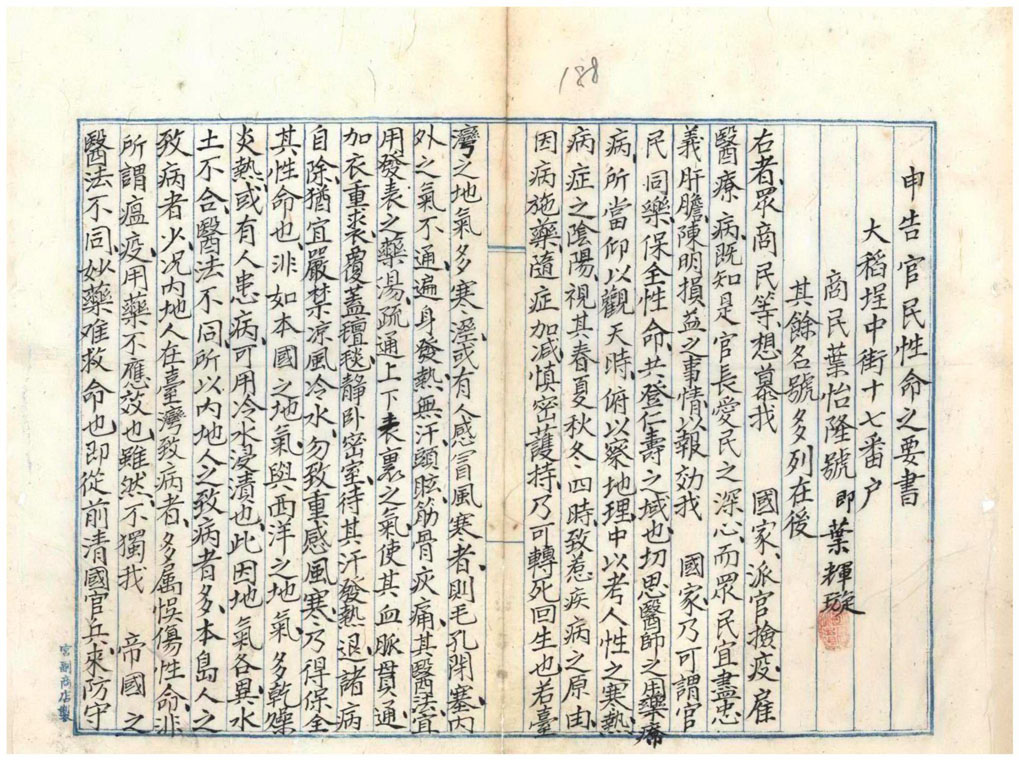 188
申告官民性命之要書
大稻埕中街十七番户
商民葉怡隆號即葉輝璇
其餘名號多列在後
右者眾商民等想慕我 國家派官撿疫雇
醫療病既知是官長愛民之深心而眾民宜盡忠
義肝膽陳明損益之事情以報効我 國家乃可謂官
民同樂保全性命共登仁壽之域也切思醫師之藥療
病所當仰以觀天時俯以察地理中以考人性之寒熱
病症之陰陽視其春夏秋冬四時致惹疾病之原由
因病施藥隨症加減慎密護持乃可轉死回生也若臺
灣之地氣多寒溼或有人感冒風寒者則毛孔閉塞內
外之氣不通遍身發熱無汗頭眩筋骨疾痛其醫法宜
用發表之藥湯疏通上下表裏之氣使其血脈貫通
加衣重裘覆蓋氊毯靜卧密室待其汗發熱退諸病
自除猶宜嚴禁凉風冷水勿致重感風寒乃得保全
其性命也非如本國之地氣與西洋之地氣多乾燥
炎熱或有人患病可用冷水浸漬也此因地氣各異水
土不合醫法不同所以內地人之致病者多本島人之
致病者少况內地人在臺灣致病者多屬悞傷性命非
所謂瘟疫用藥不應效也雖然不獨我 帝國之
醫法不同妙藥难救命也即從前清國官兵來防守